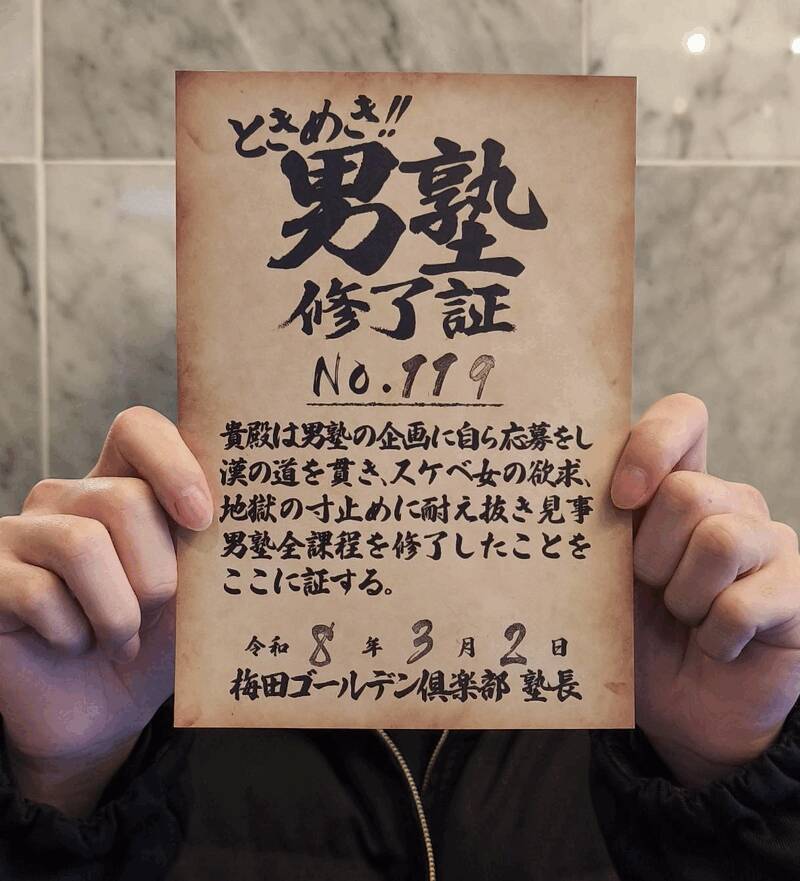 ときめき!!
男塾
修了証
No.119
貴殿は男塾の企画に自ら応募をし
漢の道を貫き、スケベ女の欲求、
地獄の寸止めに耐え抜き見事
男塾全課程を修了したことを
ここに証する。
令和 8 年 3 月 2 日
梅田ゴールデン倶楽部 塾長